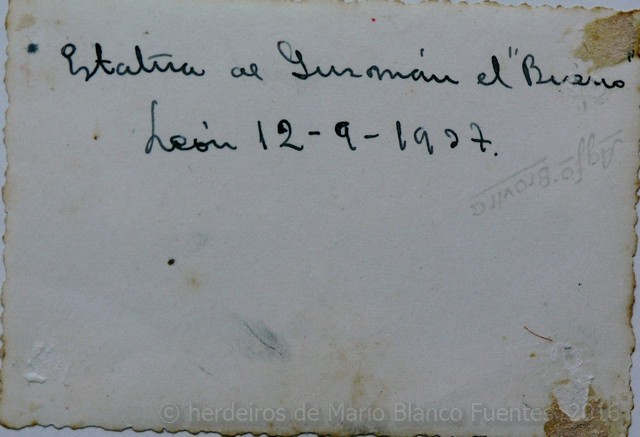 Estatua de Guzmán el "Bueno"
León 12-9-1937.
Agfa-Brovira
© herdeiros de Mario Blanco Fuentes - 2016